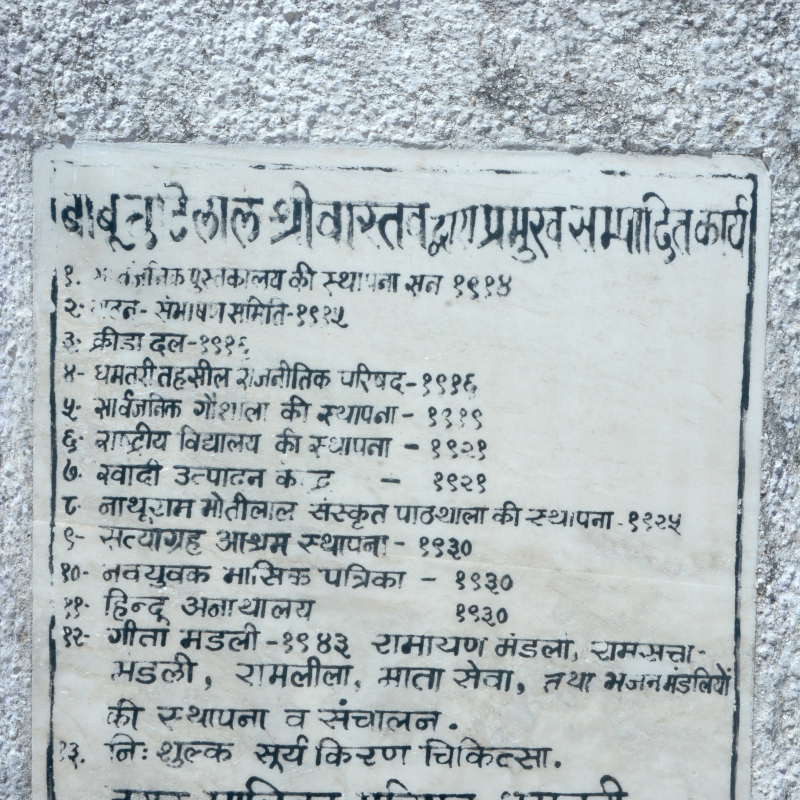 बाबू छोटेलाल श्रीवास्तव द्वारा प्रमुख सम्पादित कार्य
१. सार्वजनिक पुस्तकालय की स्थापना सन १९१४
२- संभाषण समिति-१९१५
३- क्रीडा दल-१९१६
४- धमतरी तहसील राजनीतिक परिषद-१९१६
५- सार्वजनिक गौशाला की स्थापना - १९१९
६- राष्ट्रीय विद्यालय की स्थापना - १९२१
७- खादी उत्पादन केन्द्र - १९२१
८- नाथूराम मोतीलाल संस्कृत पाठथाला की स्थापना - १९२५
९- सत्याग्रह आश्रम स्थापना - १९३०
१०- नवयुवक मासिक पत्रिका - १९३०
११- हिन्दू अनाथालय १९३०
१२- गीता मंडली -१९४३ रामायण मंडली, रामसत्ता-
मंडली, रामलीला, माता सेवा, तथा भजन मंडलियों
की स्थापना व संचालन.
१३. निः शुल्क सूर्य किरण चिकित्सा.